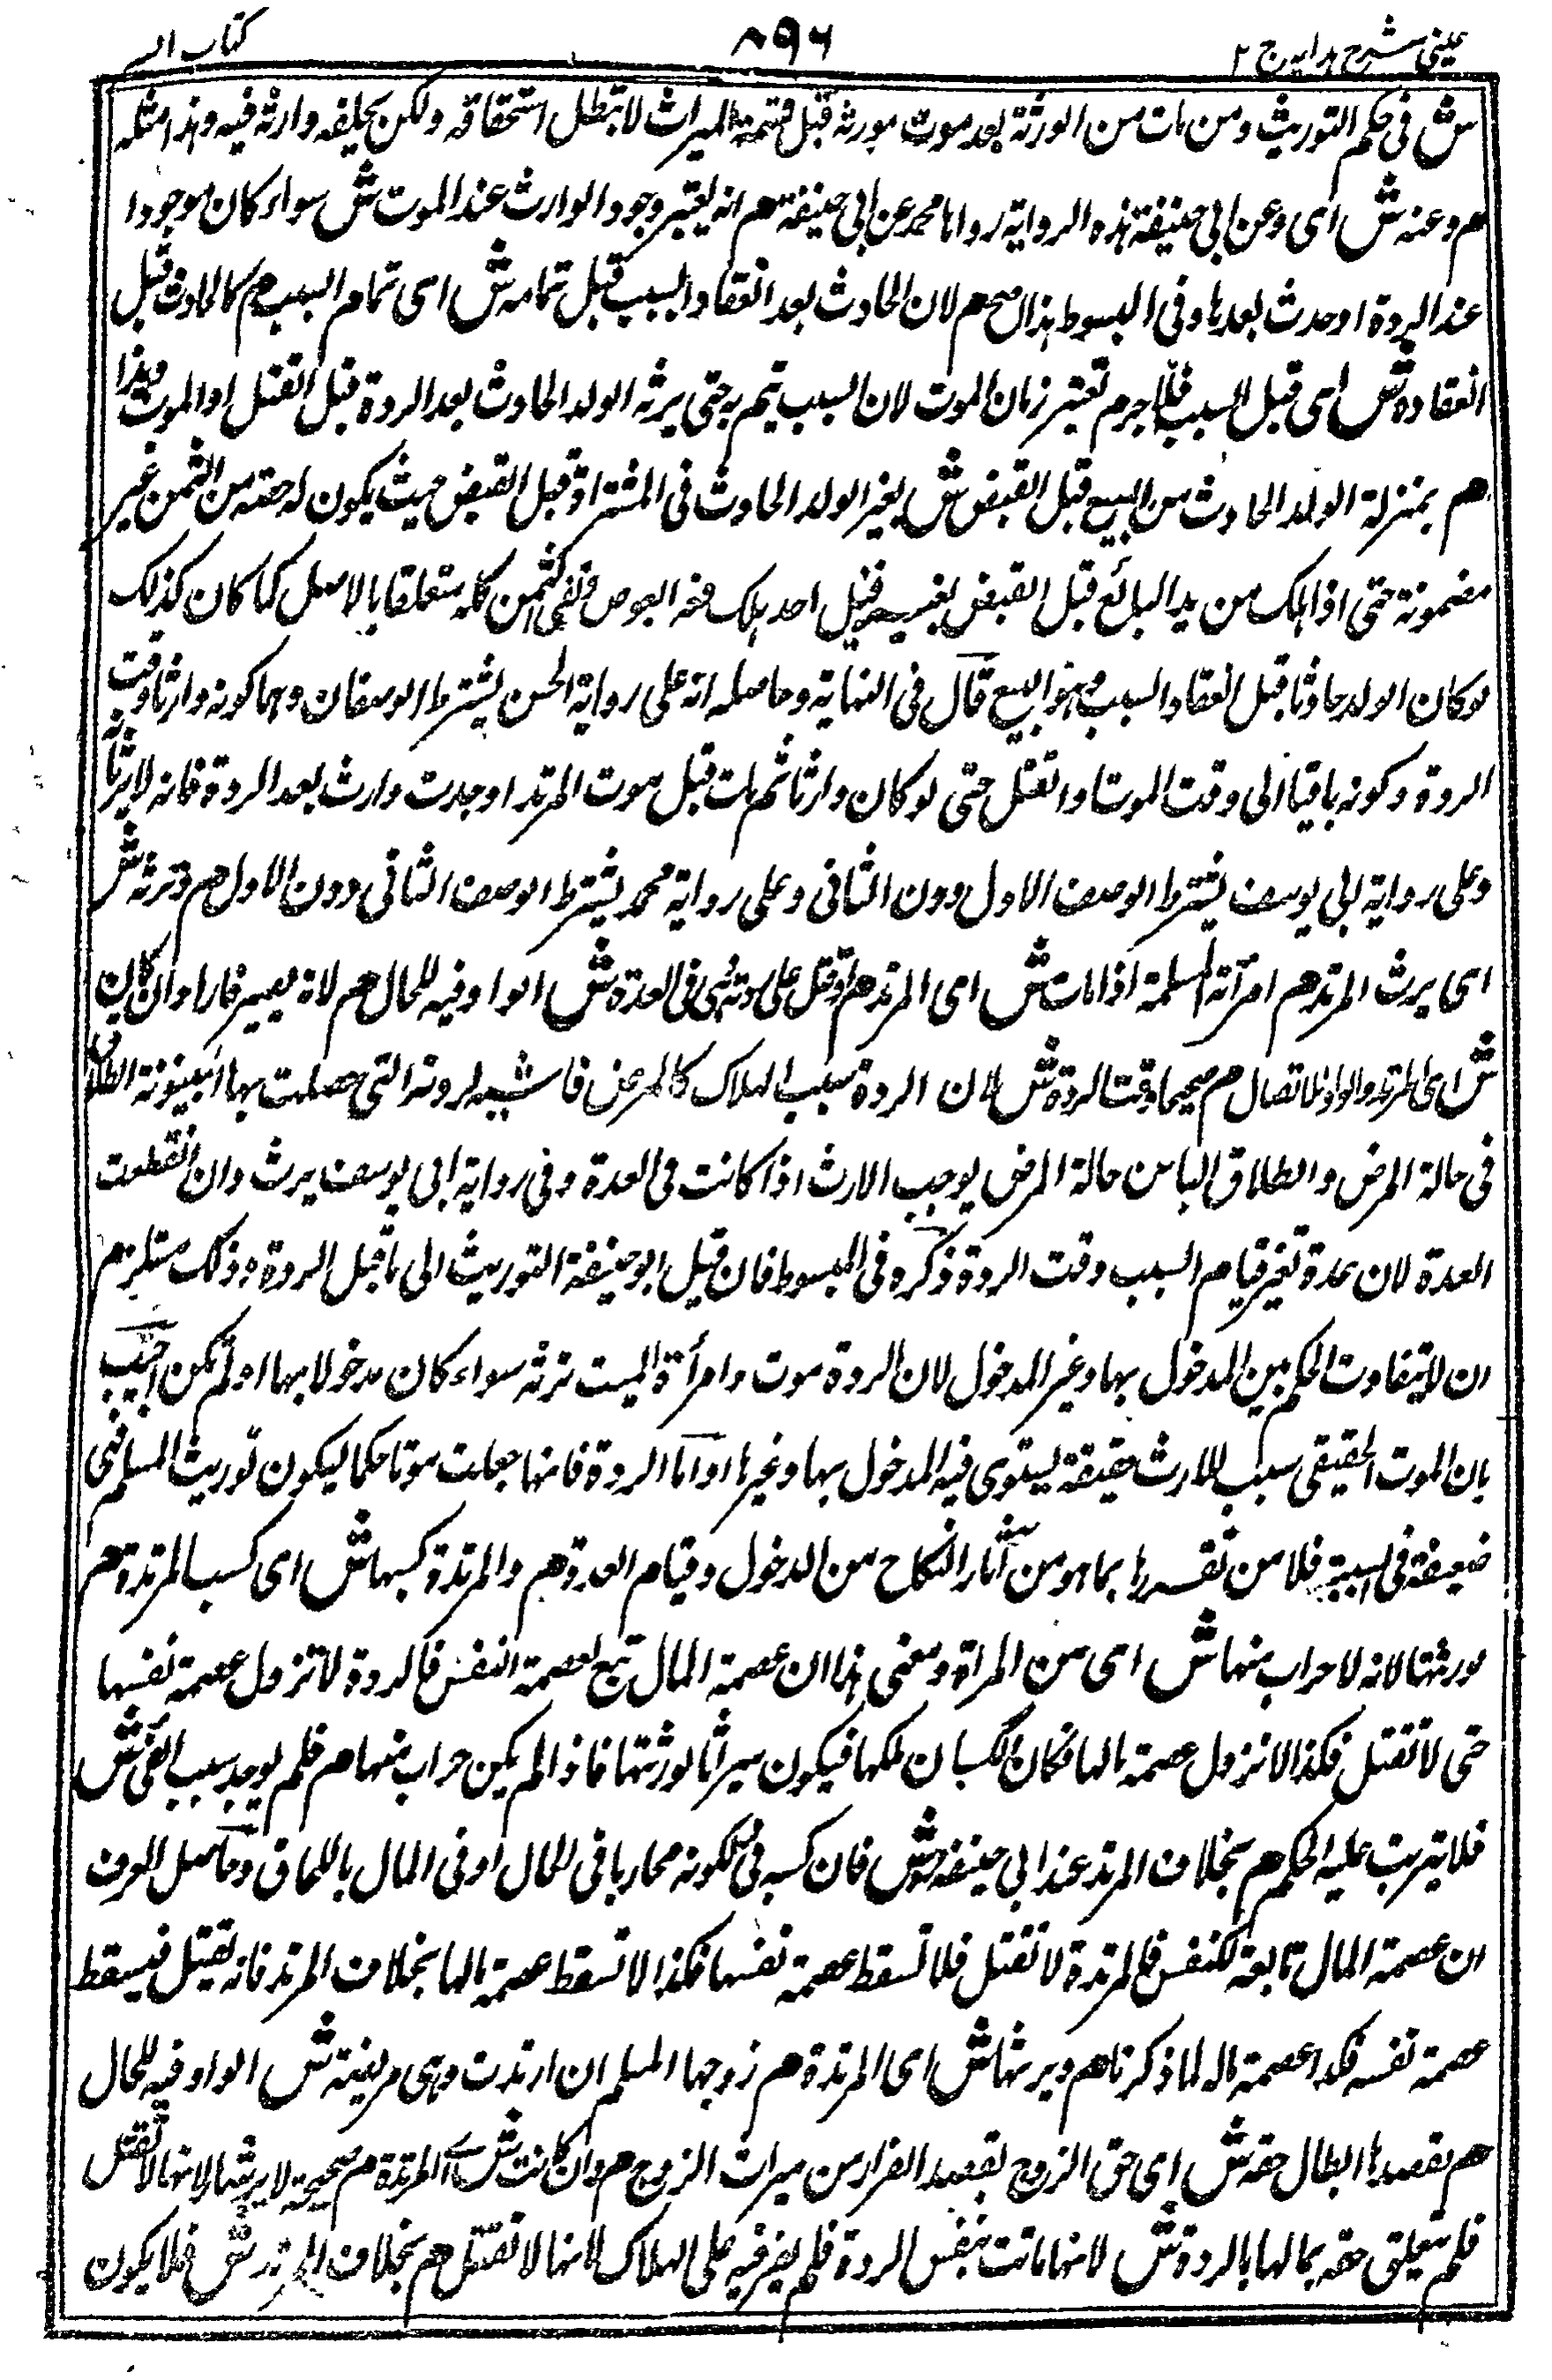 عینی شرح ہدایہ ج ۲
۸۹۶
کتاب السیر
ش فی حکم التوریث ومن مات من الورثة بعد موت مورثه قبل قسمة المیراث لا تبطل استحقاقه ولکن یخلفه وارثه فیه وهذا مثله
هم وعنه ش ای وعن ابی حنیفة هذه الروایة رواها محمد عن ابی حنیفة هم انه یعتبر وجود الوارث عند الموت ش سواء کان موجودا
عند الردة او حدث بعدها وفی المبسوط هذا اصح هم لان الحادث بعد انعقاد السبب قبل تمامه ش ای تمام السبب هم کالحادث قبل
انعقاده ش ای قبل السبب فلا جرم تعتبر زمان الموت لان السبب یتم به حتی یرثه الولد الحادث بعد الردة قبل القتل او الموت وهذا
هم بمنزلة الولد الحادث من المبیع قبل القبض ش یعنی الولد الحادث فی المشتراة قبل القبض حیث یکون له حصة من الثمن غیر
مضمونة حتی اذا هلک من ید البائع قبل القبض بغیر فعل احد هلک بغیر عوض وبقی الثمن کله متعلقا بالاصل کما کان کذلک
لو کان الولد حادثا قبل انعقاد السبب وهو البیع قال فی النهایة وحاصله انه علی روایة الحسن یشترط الوصفان وهما کونه وارثا وقت
الردة وکونه باقیا الی وقت الموت او القتل حتی لو کان وارثا ثم مات قبل موت المرتد او حدث وارث بعد الردة فانه لا یرثه
وعلی روایة ابی یوسف یشترط الوصف الاول دون الثانی وعلی روایة محمد یشترط الوصف الثانی دون الاول هم وترثه ش
ای یرث المرتد هم امرأته المسلمة اذا مات ش ای المرتد هم او قتل علی ردته وهی فی العدة ش الواو فیه للحال هم لانه یصیر فارا وان کان
ش ای المرتد والواو للاتصال هم صحیحا وقت الردة ش لان الردة سبب الهلاک کالمرض فاشبه لردته التی حصلت بها البینونة الطلاق
فی حالة المرض والطلاق البائن حالة المرض یوجب الارث اذا کانت فی العدة وفی روایة ابی یوسف یرث وان انقطعت
العدة لان عنده تعتبر قیام السبب وقت الردة ذکره فی المبسوط فان قیل ابو حنیفة التوریث الی ما قبل الردة وذلک مستلزم
ان لا یتفاوت الحکم بین المدخول بها وغیر المدخول لان الردة موت وامرأة المیت ترثه سواء کان مدخولا بها او لم تکن اجیب
بان الموت الحقیقی سبب للارث حقیقة یستوی فیه المدخول بها وغیرها واما الردة فانها جعلت موتا حکما لیکون توریث المسلم فهی
ضعیفة فی السببیة فلا من تقررها بما هو من آثار النکاح من الدخول وقیام العدة هم والمرتدة کسبها ش ای کسب المرتدة هم
لورثتها لانه لا حراب منها ش ای من المراة ومعنی هذا ان عصمة المال تبع لعصمة النفس فالردة لا تزول عصمة نفسها
حتی لا تقتل فکذا لا تزول عصمة مالها فکان الکسبان ملکها فیکون میراثا لورثتها فاذا لم یکن حراب منها هم فلم یوجد سبب الفئ ش
فلا یترتب علیه الحکم هم بخلاف المرتد عند ابی حنیفة ش فان کسبه فئ لکونه محاربا فی الحال او فی المال باللحاق وحاصل الفرق
ان عصمة المال تابعة للنفس فالمرتدة لا تقتل فلا تسقط عصمة نفسها فکذا لا تسقط عصمة مالها بخلاف المرتد فانه یقتل فیسقط
عصمة نفسه فکذا عصمة ماله لما ذکرنا هم ویرثها ش ای المرتدة هم زوجها المسلم ان ارتدت وهی مریضة ش الواو فیه للحال
هم بقصدها ابطال حقه ش ای حق الزوج بقصد الفرار من میراث الزوج هم وان کانت ش ای المرتدة هم صحیحة لا یرثها لانها لا تقتل
فلم یتعلق حقه بمالها بالردة ش لانها بانت بنفس الردة فلم یفر فیه علی الهلاک لانها لا تقتل هم بخلاف المرتد ش فلا یکون